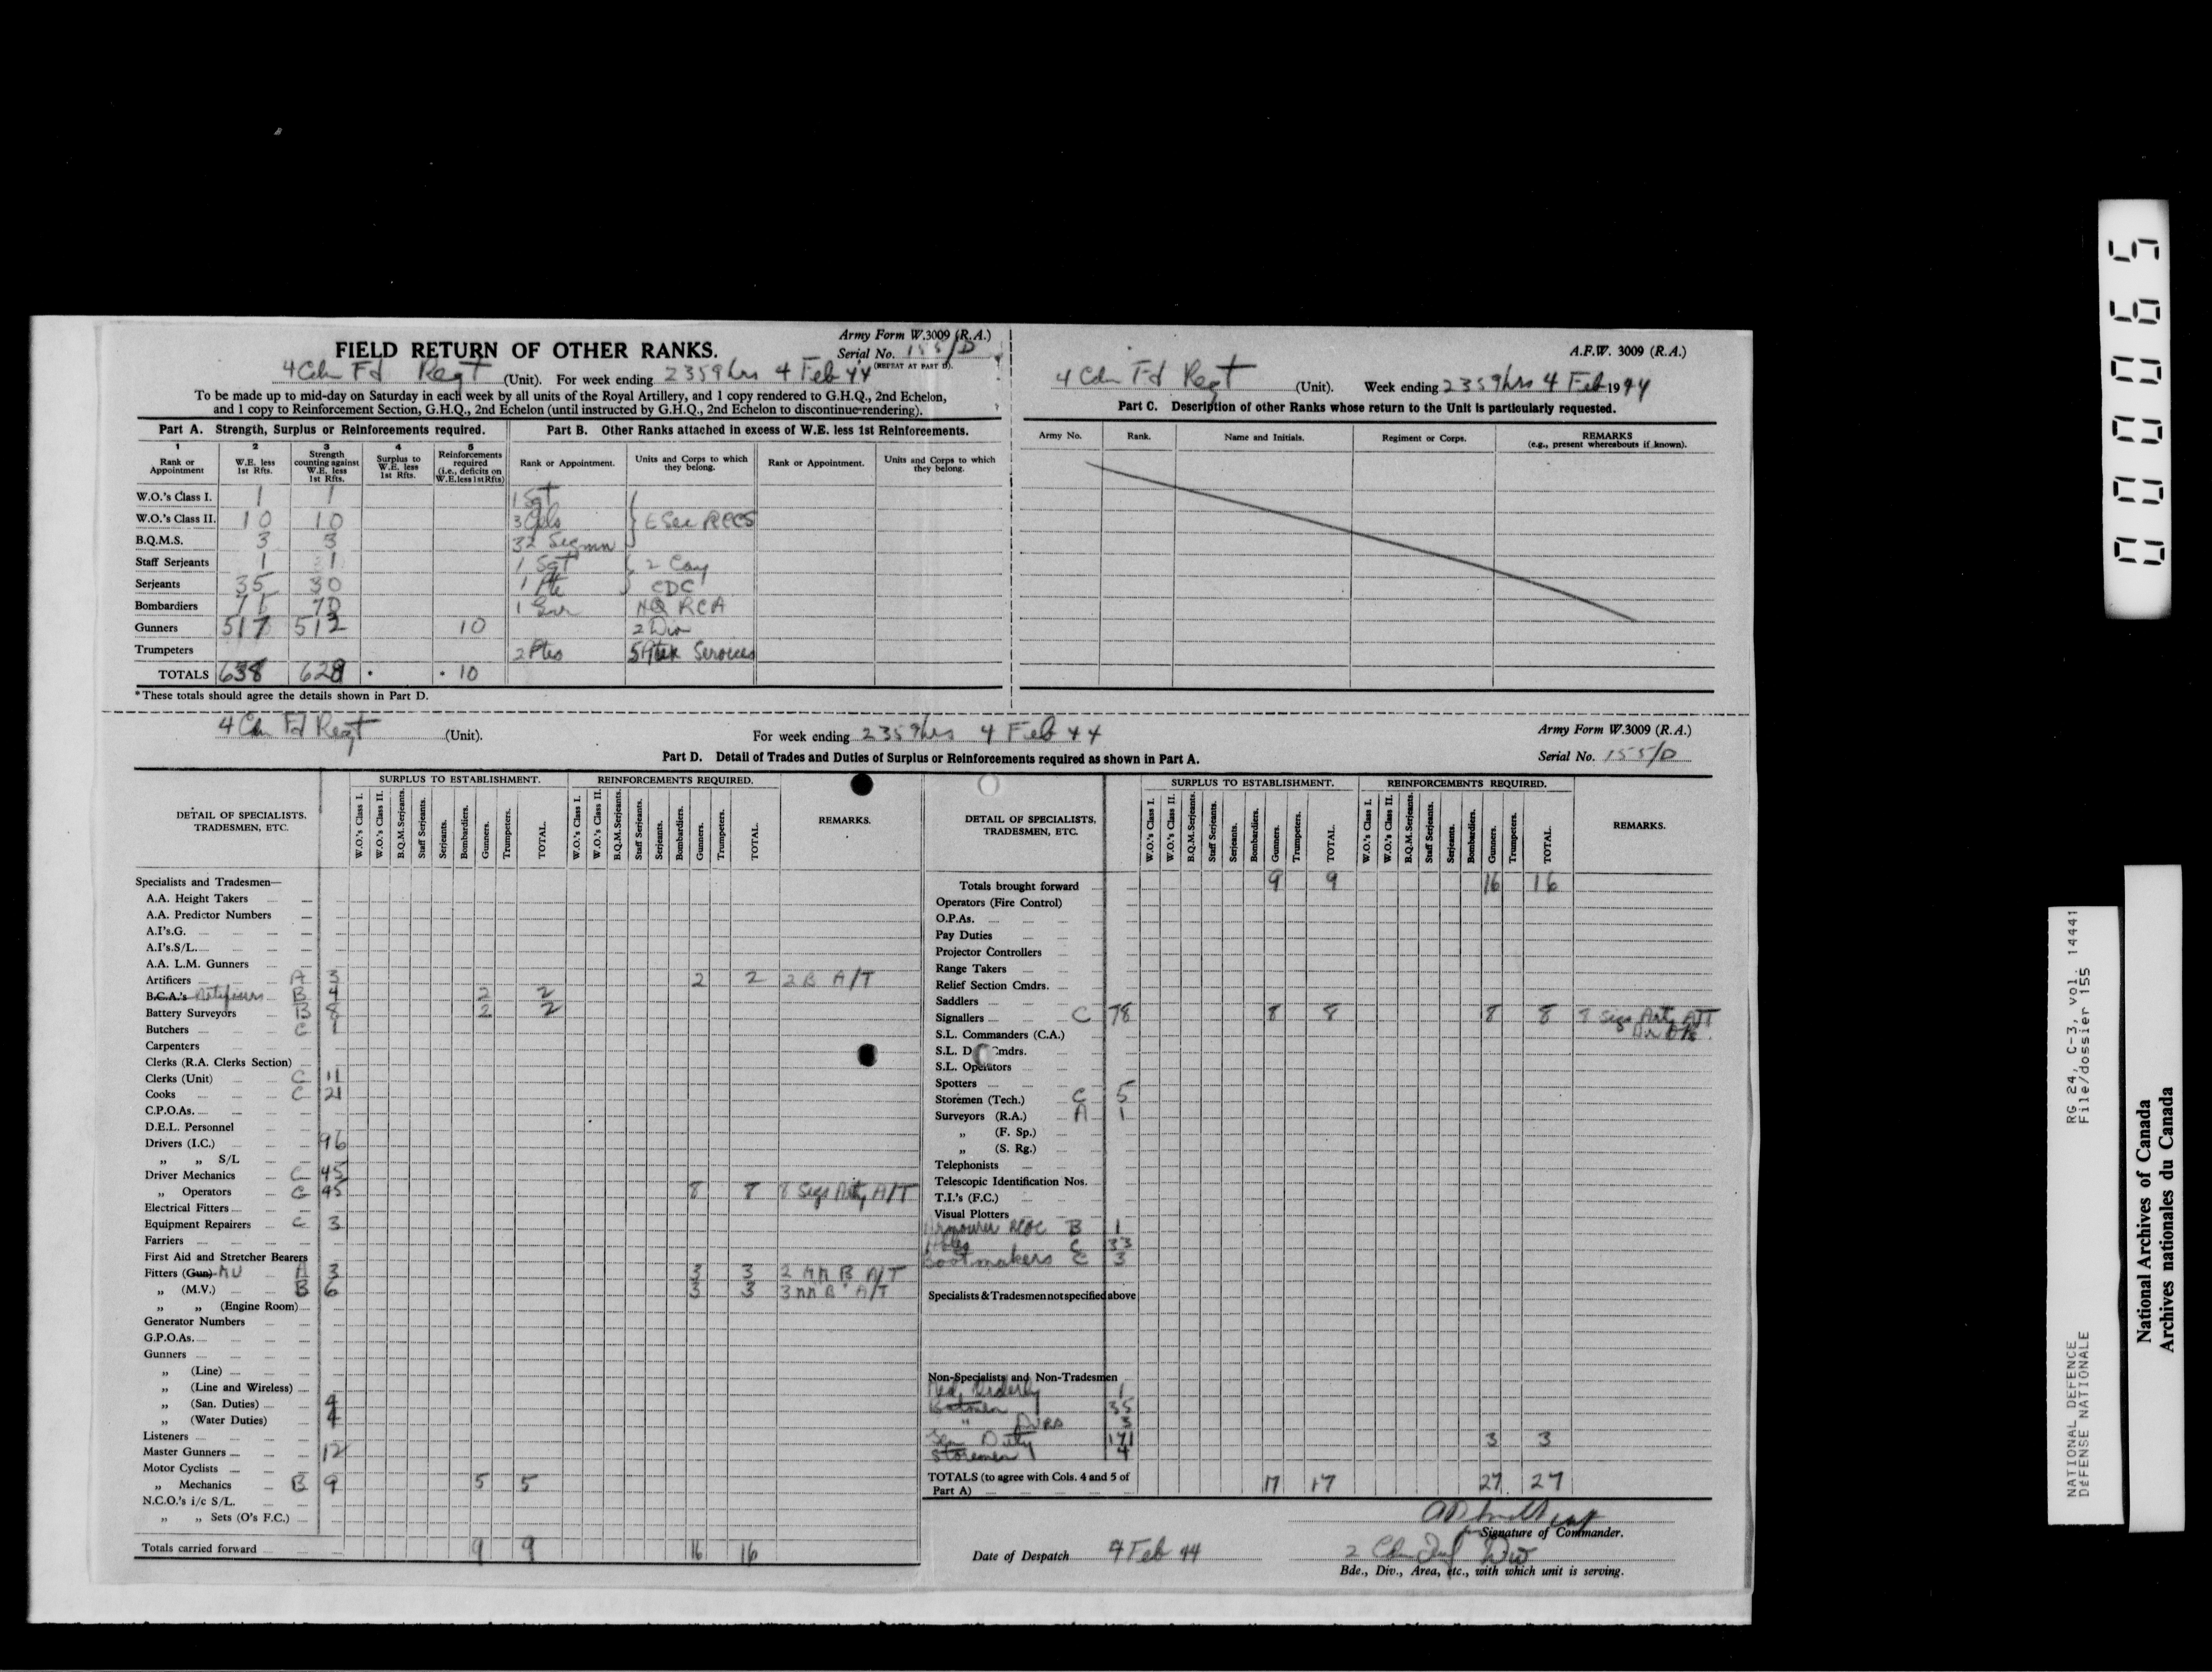 Army Form W.3009 (R.A.)
FIELD RETURN OF OTHER RANKS.
Serial No. 155/D
(REPEAT AT PART D).
4 Cdn Fd Regt (Unit). For week ending 2359hrs 4 Feb 44
To be made up to mid-day on Saturday in each week by all units of the Royal Artillery, and 1 copy rendered to G.H.Q., 2nd Echelon,
and 1 copy to Reinforcement Section, G.H.Q., 2nd Echelon (until instructed by G.H.Q., 2nd Echelon to discontinue rendering).
Part A. Strength, Surplus or Reinforcements required.
1 2 3 4 5
Rank or Appointment
W.E. less 1st Rfts.
Strength counting against W.E. less 1st Rfts.
Surplus to W.E. less 1st Rfts.
Reinforcements required (i.e., deficits on W.E. less 1st Rfts)
W.O.'s Class I. 1 1
W.O.'s Class II. 10 10
B.Q.M.S. 3 3
Staff Serjeants 1 1
Serjeants 35 30
Bombardiers 71 70
Gunners 517 512 10
Trumpeters
TOTALS 638 628 10
* These totals should agree the details shown in Part D.
Part B. Other Ranks attached in excess of W.E. less 1st Reinforcements.
Rank or Appointment. Units and Corps to which they belong. Rank or Appointment. Units and Corps to which they belong.
1 Sgt
3 Cpls E Sec RCCS
32 Sigmn
1 Sgt 2 Coy
1 Pte CDC
1 Gnr HQ RCA
2 Div
2 Ptes Services
A.F.W. 3009 (R.A.)
4 Cdn Fd Regt (Unit). Week ending 2359hrs 4 Feb 1944
Part C. Description of other Ranks whose return to the Unit is particularly requested.
Army No. Rank. Name and Initials. Regiment or Corps. REMARKS (e.g., present whereabouts if known).
4 Cdn Fd Regt (Unit). For week ending 2359hrs 4 Feb 44
Army Form W.3009 (R.A.)
Part D. Detail of Trades and Duties of Surplus or Reinforcements required as shown in Part A.
Serial No. 155/D
SURPLUS TO ESTABLISHMENT. REINFORCEMENTS REQUIRED.
DETAIL OF SPECIALISTS, TRADESMEN, ETC.
W.O.'s Class I. W.O.'s Class II. B.Q.M. Serjeants. Staff Serjeants. Serjeants. Bombardiers. Gunners. Trumpeters. TOTAL.
W.O.'s Class I. W.O.'s Class II. B.Q.M. Serjeants. Staff Serjeants. Serjeants. Bombardiers. Gunners. Trumpeters. TOTAL.
REMARKS.
Specialists and Tradesmen—
A.A. Height Takers
A.A. Predictor Numbers
A.I's.G.
A.I's.S/L.
A.A. L.M. Gunners
Artificers A 3 2 2 2 B A/T
B.C.A.'s Artificers B 4 2 2
Battery Surveyors B 8 2 2
Butchers C 1
Carpenters
Clerks (R.A. Clerks Section)
Clerks (Unit) C 11
Cooks C 21
C.P.O.As.
D.E.L. Personnel
Drivers (I.C.) 96
„ „ S/L
Driver Mechanics C 45
„ Operators C 45 8 8 8 Sigs Arty A/T
Electrical Fitters
Equipment Repairers C 3
Farriers
First Aid and Stretcher Bearers
Fitters (Gun) MV A 3 3 3 2 MM B A/T
„ (M.V.) B 6 3 3 3 MM B A/T
„ „ (Engine Room)
Generator Numbers
G.P.O.As.
Gunners
„ (Line)
„ (Line and Wireless)
„ (San. Duties) 4
„ (Water Duties) 4
Listeners
Master Gunners 12
Motor Cyclists
„ Mechanics B 9 5 5
N.C.O.'s i/c S/L.
„ „ Sets (O's F.C.)
Totals carried forward 9 9 16 16
SURPLUS TO ESTABLISHMENT. REINFORCEMENTS REQUIRED.
DETAIL OF SPECIALISTS, TRADESMEN, ETC.
W.O.'s Class I. W.O.'s Class II. B.Q.M. Serjeants. Staff Serjeants. Serjeants. Bombardiers. Gunners. Trumpeters. TOTAL.
W.O.'s Class I. W.O.'s Class II. B.Q.M. Serjeants. Staff Serjeants. Serjeants. Bombardiers. Gunners. Trumpeters. TOTAL.
REMARKS.
Totals brought forward 9 9 16 16
Operators (Fire Control)
O.P.As.
Pay Duties
Projector Controllers
Range Takers
Relief Section Cmdrs.
Saddlers
Signallers C 78 8 8 8 8 8 Sigs Arty A/T
S.L. Commanders (C.A.)
S.L. D Cmdrs.
S.L. Operators
Spotters
Storemen (Tech.) C 5
Surveyors (R.A.) A 1
„ (F. Sp.)
„ (S. Rg.)
Telephonists
Telescopic Identification Nos.
T.I.'s (F.C.)
Visual Plotters
Armourer RCOC B 1
C 33
Bootmakers C 3
Specialists & Tradesmen not specified above
Non-Specialists and Non-Tradesmen
Med Orderly 1
Batmen 35
" Dvrs 3
Gen Duty 171 3 3
Storemen 4
TOTALS (to agree with Cols. 4 and 5 of Part A) 17 17 27 27
Signature of Commander.
Date of Despatch 4 Feb 44
2 Cdn Inf Div
Bde., Div., Area, etc., with which unit is serving.
000065
NATIONAL DEFENCE RG 24, C-3, vol. 14441
DÉFENSE NATIONALE File/dossier 155
National Archives of Canada
Archives nationales du Canada